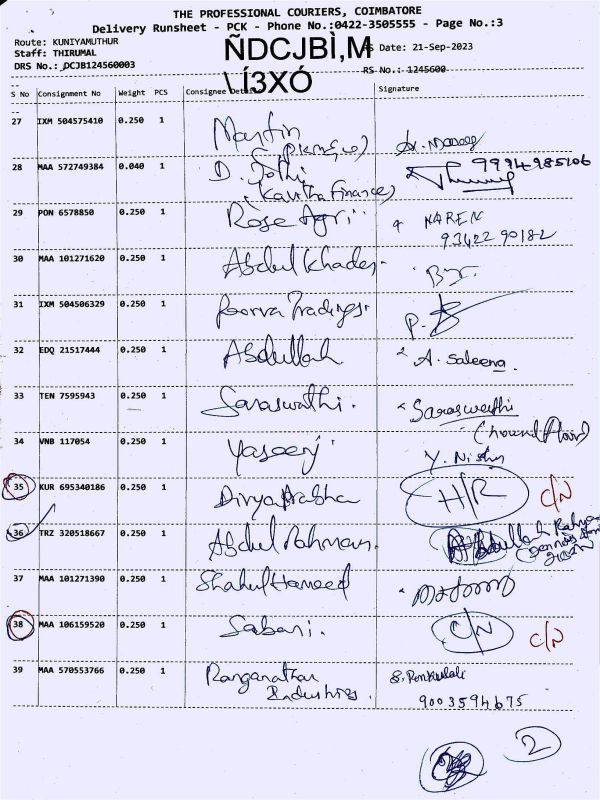 THE PROFESSIONAL COURIERS, COIMBATORE
Delivery Runsheet - PCK - Phone No.:0422-3505555 - Page No.:3
Route: KUNIYAMUTHUR
Staff: THIRUMAL
DRS No.: DCJB124560003
ÑDCJBÌ,M
\Í3XÓ
Date: 21-Sep-2023
RS No.: 1245600
S No Consignment No Weight PCS Consignee Details Signature
27 IXM 504575410 0.250 1 Martin
28 MAA 572749384 0.040 1 D. Jothi 9994985106
(Kavitha Finance)
29 PON 6578850 0.250 1 Rose Agri NAREN
93422 90182
30 MAA 101271620 0.250 1 Abdul Khader
31 IXM 504506329 0.250 1 Poorva Tradings. P.
32 EDQ 21517444 0.250 1 Abdullah A. Saleena.
33 TEN 7595943 0.250 1 Saraswathi. Saraswathi
34 VNB 117054 0.250 1 Yaseen Y. Nisha
35 KUR 695340186 0.250 1 Divya Prabha H/R C/N
36 TRZ 320518667 0.250 1 Abdul Rahman. Abdullah
37 MAA 101271390 0.250 1 Shahul Hameed
38 MAA 106159520 0.250 1 Sabari. C/N C/N
39 MAA 570553766 0.250 1 Ranganathan
Industries. 9003594675
2